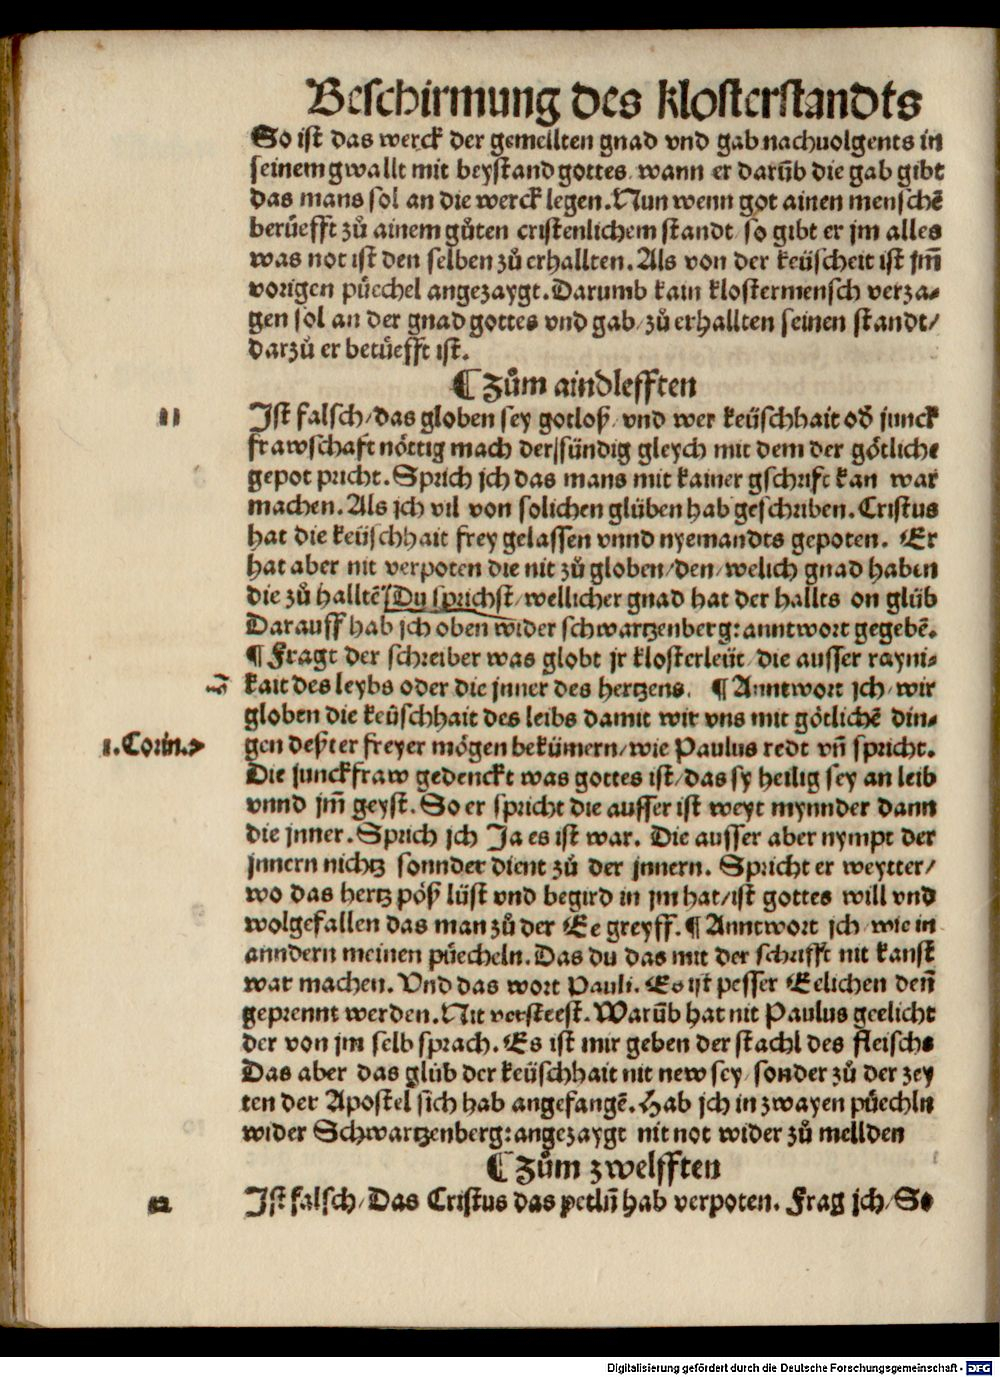 Beschirmung des klosterstandts
So ist das werck der gemellten gnad vnd gab nachuolgents in
seinem gwallt mit beystand gottes / wann er darüb die gab gibt
das mans sol an die werck legen. Nun wenn got ainen menschē
berüefft zů ainem gůten cristenlichem standt / so gibt er jm alles
was not ist den selben zů erhallten. Als von der keüscheit ist jm̄
vorigen püechel angezaygt. Darumb kain klostermensch verza⸗
gen sol an der gnad gottes vnd gab / zů erhallten seinen standt /
darzů er berüefft ist.
¶ Zům aindlefften
11 Ist falsch / das globen sey gotloß / vnd wer keüschhait od̄ junck
frawschaft nöttig mach der / sündig gleych mit dem der götliche
gepot pricht. Sprich jch das mans mit kainer gschrift kan war
machen. Als jch vil von solichen glüben hab geschriben. Cristus
hat die keüschhait frey gelassen vnnd nyemandts gepoten. Er
hat aber nit verpoten die nit zů globen / den / welich gnad haben
die zů halltē / Du sprichst / wellicher gnad hat der hallts on glüb
Darauff hab jch oben wider schwartzenberg: anntwort gegebē.
¶ Fragt der schreiber was globt jr klosterleüt / die ausser rayni⸗
kait des leybs oder die jnner des hertzens. ¶ Anntwort jch / wir
globen die keüschhait des leibs damit wir vns mit götlichē din⸗
1. Corin. 7 gen deßter freyer mögen bekümern / wie Paulus redt vn̄ spricht.
Die junckfraw gedenckt was gottes ist / das sy heilig sey an leib
vnnd jm̄ geyst. So er spricht die ausser ist weyt mynnder dann
die jnner. Sprich jch Ja es ist war. Die ausser aber nympt der
jnnern nichtz sonnder dient zů der jnnern. Spricht er weytter /
wo das hertz pöß lüst vnd begird in jm hat / ist gottes will vnd
wolgefallen das man zů der Ee greyff. ¶ Anntwort jch / wie in
anndern meinen püecheln. Das du das mit der schrifft nit kanst
war machen. Vnd das wort Pauli. Es ist pesser Eelichen den̄
geprennt werden. Nit versteest. Warūb hat nit Paulus geelicht
der von jm selb sprach. Es ist mir geben der stachl des fleischs
Das aber das glüb der keüschhait nit new sey / sonder zů der zey
ten der Apostel sich hab angefangē. Hab jch in zwayen püechln
wider Schwartzenberg: angezaygt nit not wider zů mellden
¶ Zům zwelfften
12 Ist falsch / Das Cristus das petln̄ hab verpoten. Frag jch / So
Digitalisierung gefördert durch die Deutsche Forschungsgemeinschaft - DFG